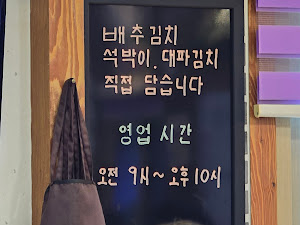 배추김치
석박이. 대파김치
직접 담습니다
영업 시간
오전 9시~오후10시